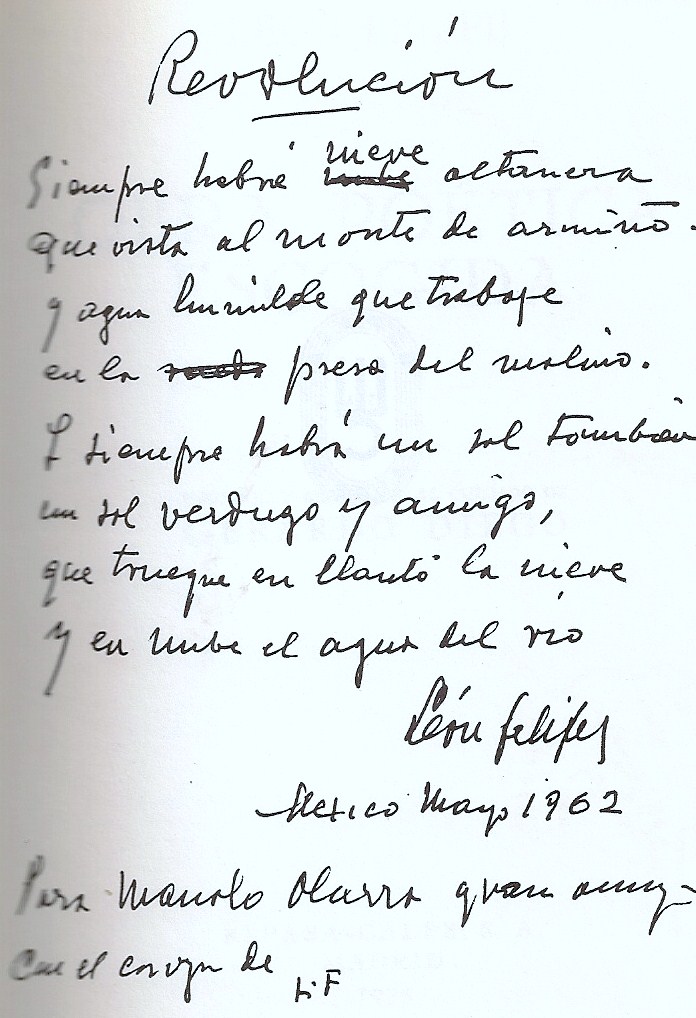 Revolución
Siempre habrá nieve altanera
que vista al monte de armiño.
y agua humilde que trabaje
en la presa del molino.
Y siempre habrá un sol también
un sol verdugo y amigo,
que trueque en llanto la nieve
y en nube el agua del río
León Felipe
Mexico Mayo 1962
Para Manolo gran amigo
Con el corazon de
L.F